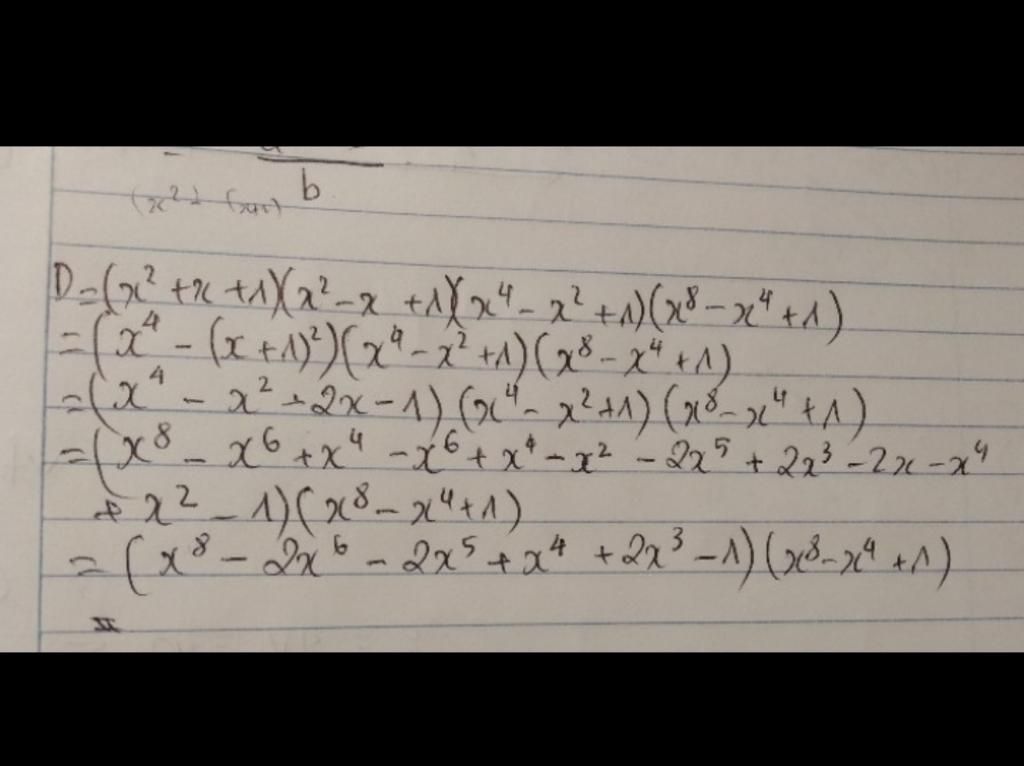 b
(x²)
D=(x²+x+1)(x²-x+1)(x⁴-x²+1)(x⁸-x⁴+1)
=(x⁴-(x+1)²)(x⁴-x²+1)(x⁸-x⁴+1)
=(x⁴-x²-2x-1)(x⁴-x²+1)(x⁸-x⁴+1)
=(x⁸-x⁶+x⁴-x⁶+x⁴-x²-2x⁵+2x³-2x-x⁴
+x²-1)(x⁸-x⁴+1)
=(x⁸-2x⁶-2x⁵+x⁴+2x³-1)(x⁸-x⁴+1)
=